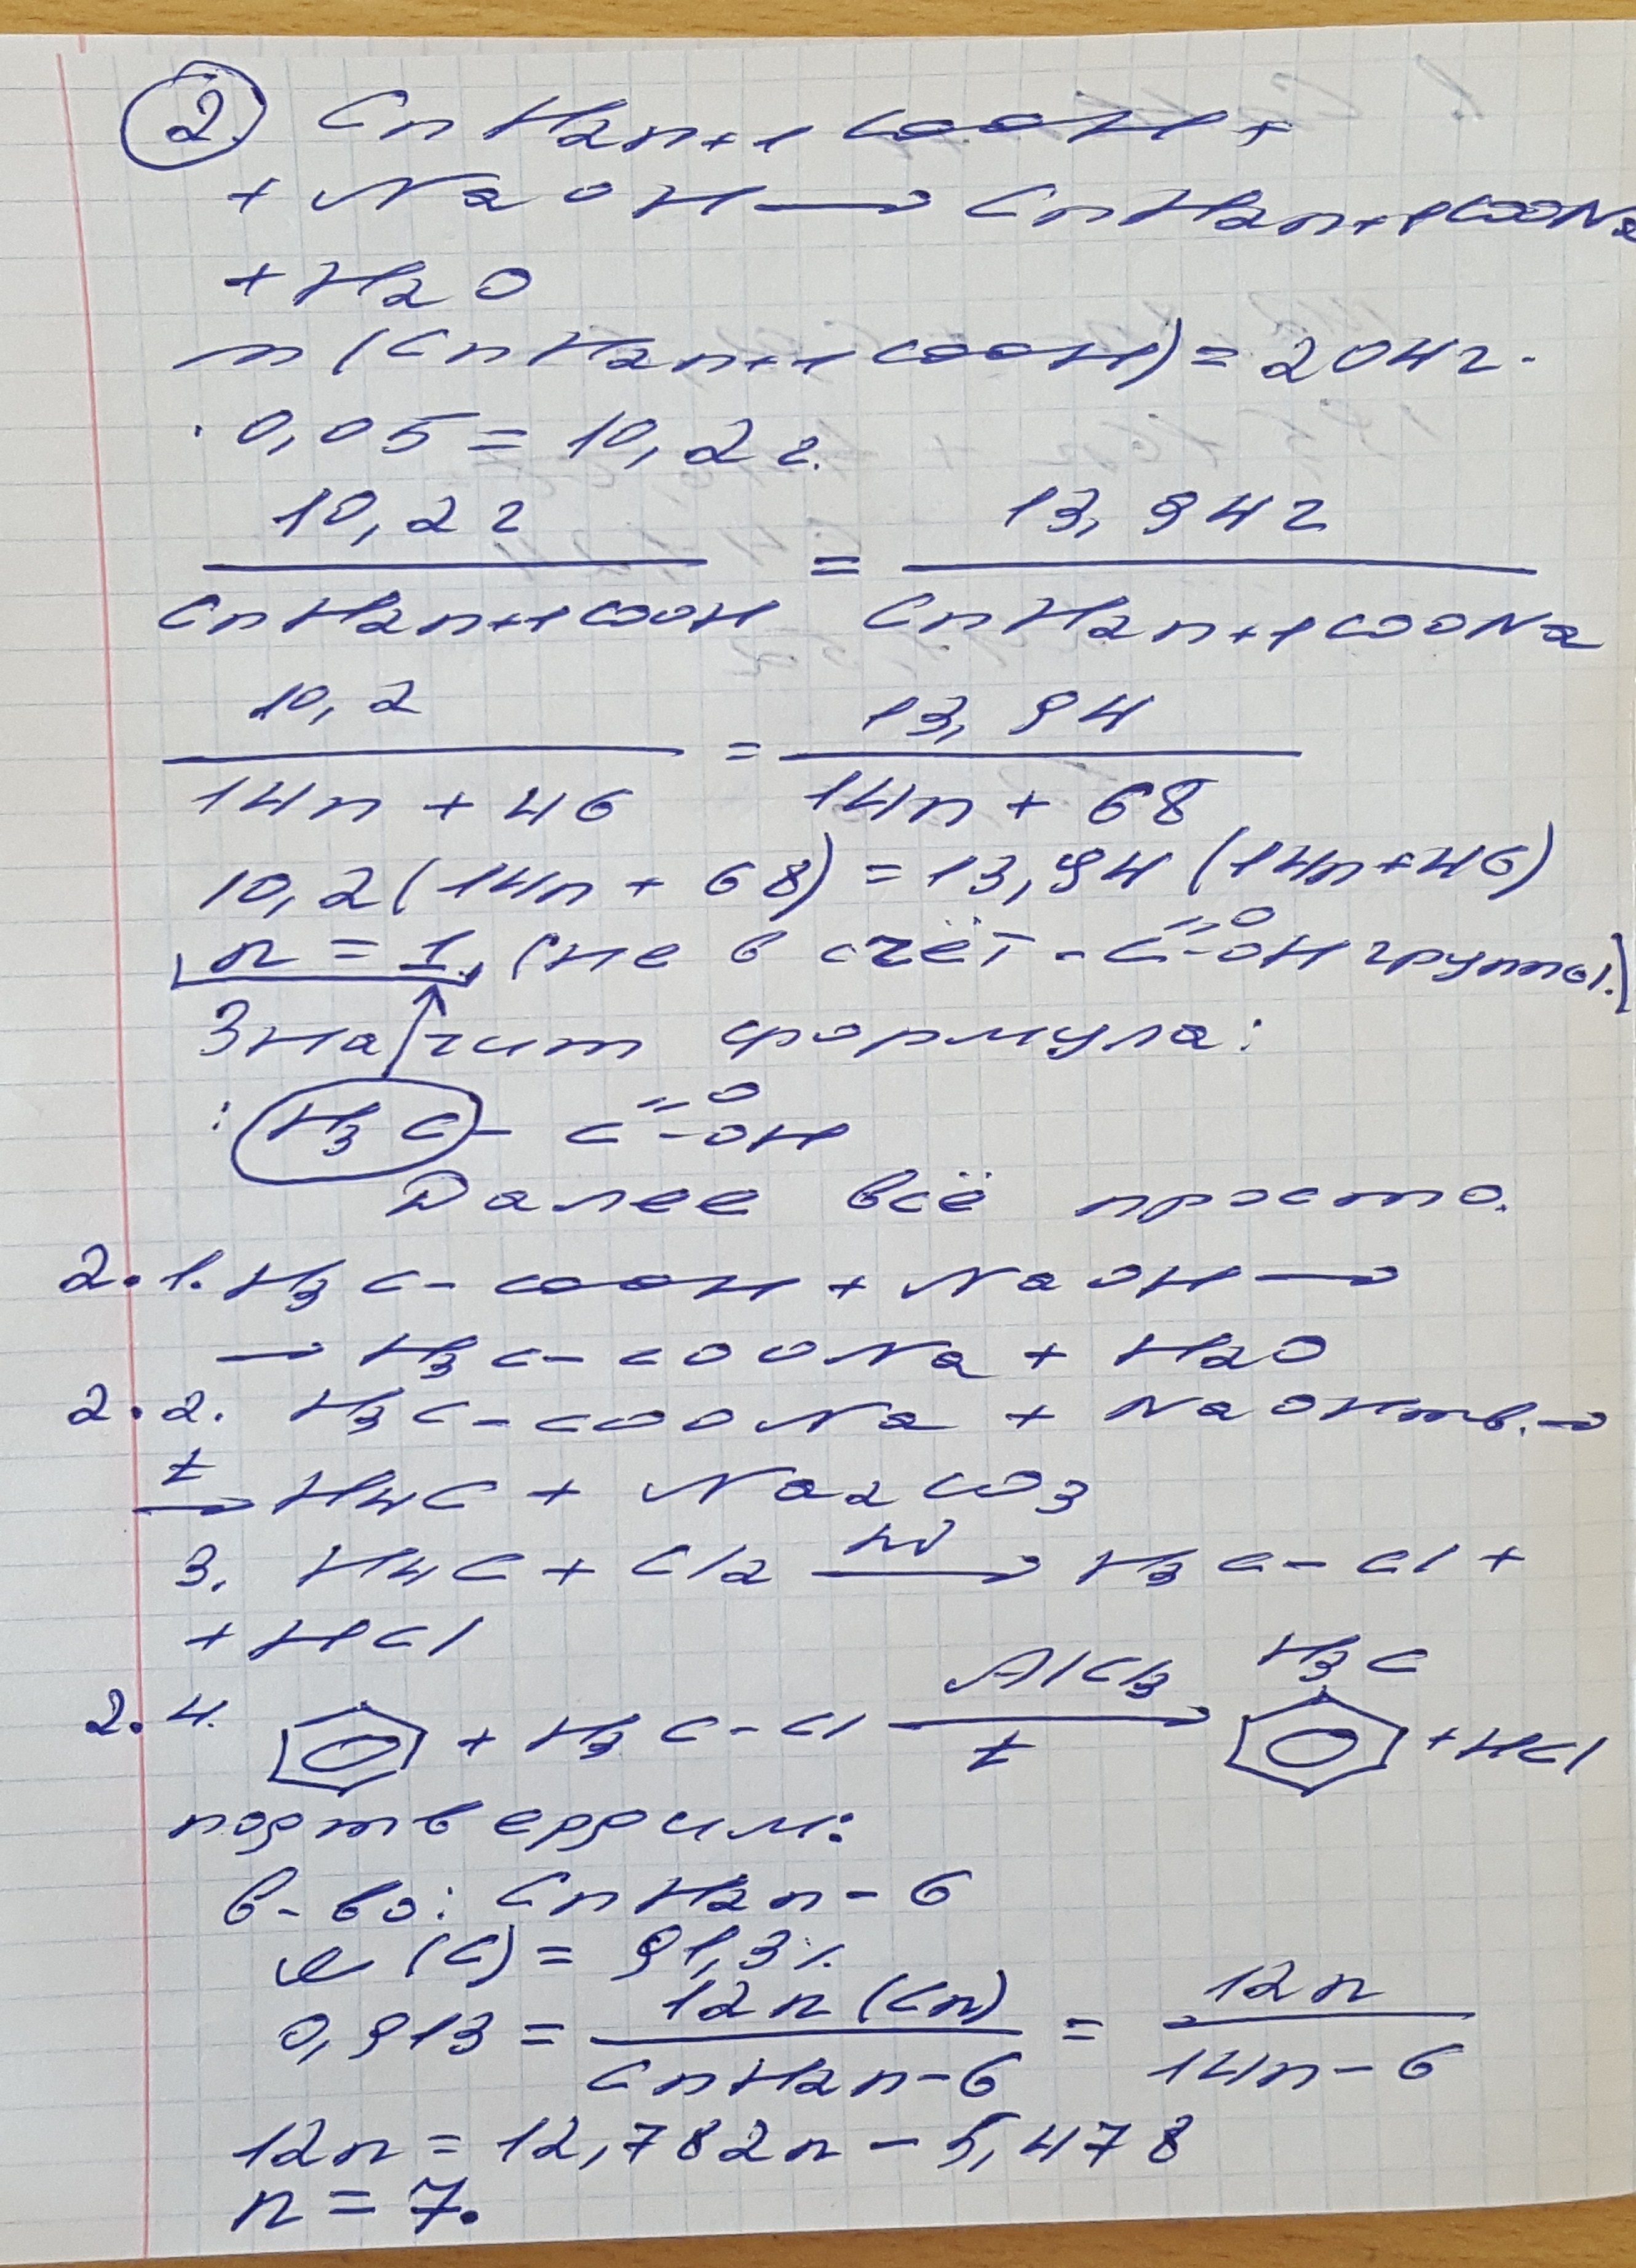 2. CnH2n+1COOH +
+ NaOH → CnH2n+1COONa
+ H2O
m (CnH2n+1COOH) = 204г ·
· 0,05 = 10,2г.
10,2г / CnH2n+1COOH = 13,94г / CnH2n+1COONa
10,2 / 14n + 46 = 13,94 / 14n + 68
10,2 (14n + 68) = 13,94 (14n + 46)
n = 1. (не в счёт -C=O-OH группы.)
Значит формула:
: H3C - C=O-OH
Далее всё просто.
2.1. H3C-COOH + NaOH →
→ H3C-COONa + H2O
2.2. H3C-COONa + NaOHтв. →
t → H4C + Na2CO3
3. H4C + Cl2 hν → H3C-Cl +
+ HCl
2.4. + H3C-Cl AlCl3 → t H3C + HCl
подтвердим:
в-во: CnH2n-6
ω (C) = 91,3%
0,913 = 12n (Cn) / CnH2n-6 = 12n / 14n - 6
12n = 12,782n - 5,478
n = 7.